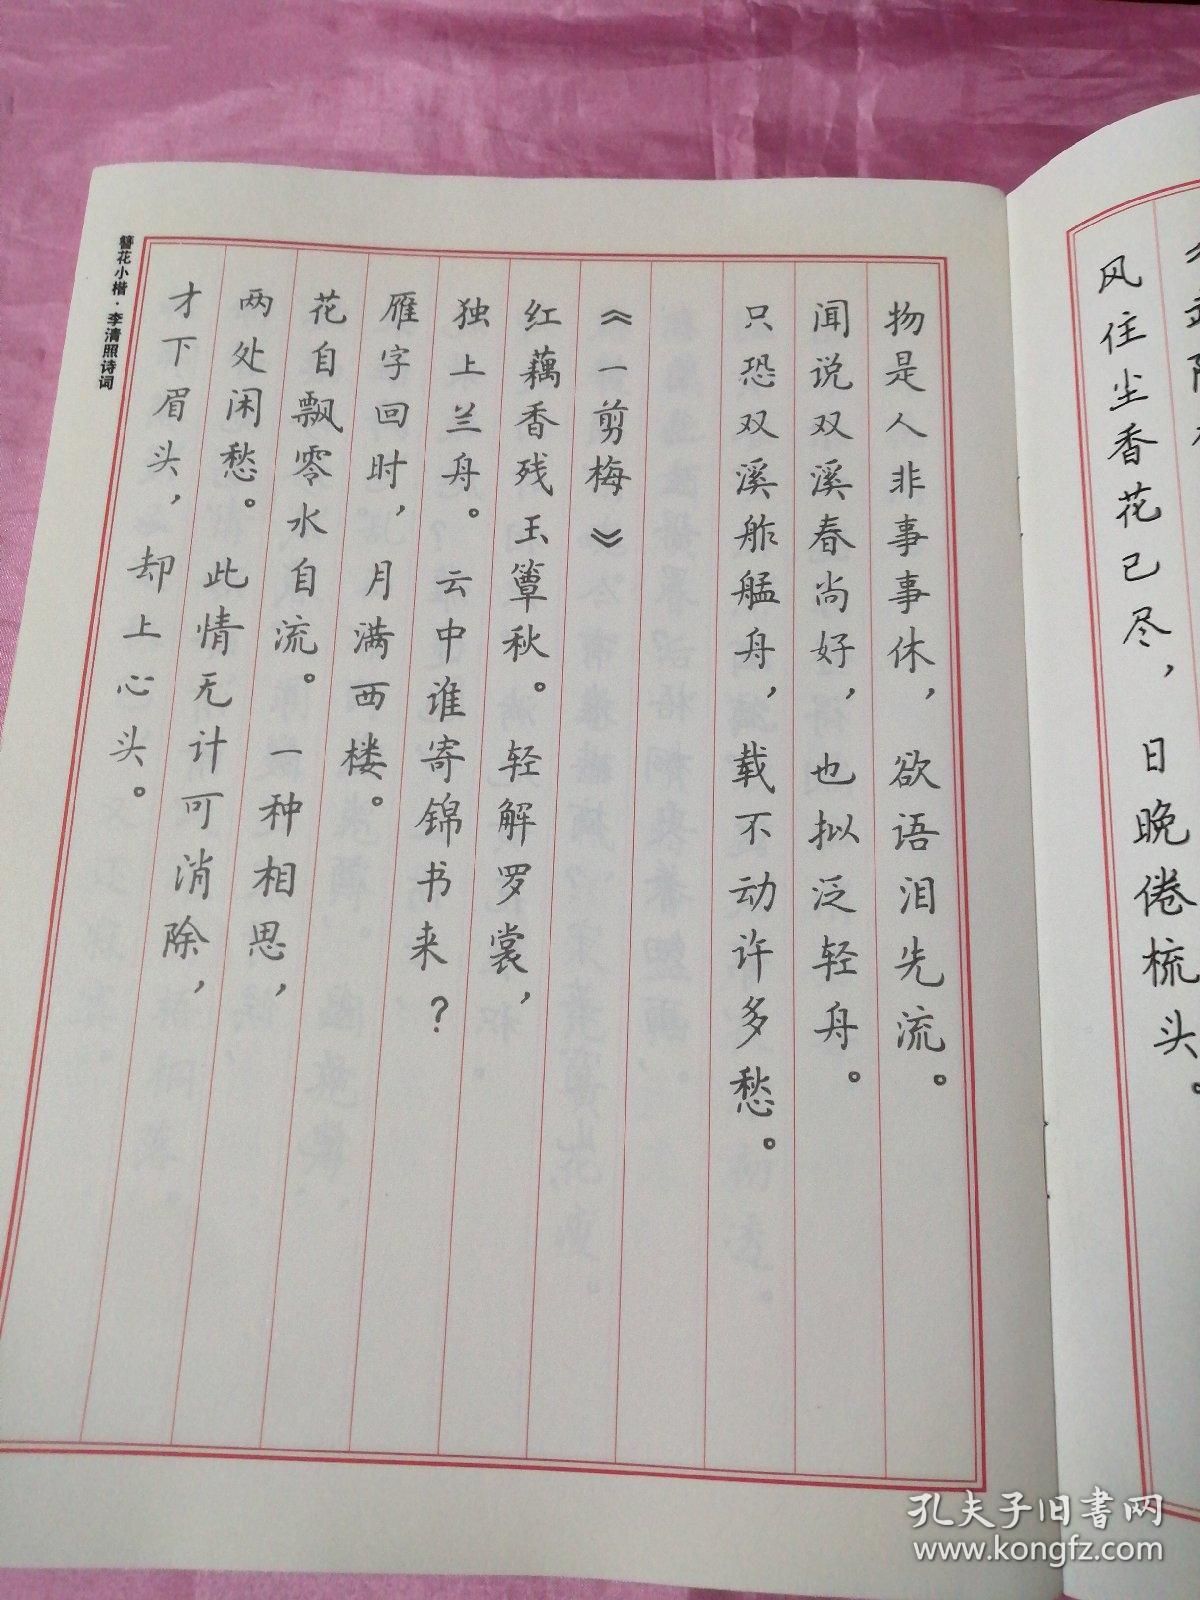 风住尘香花已尽，日晚倦梳头。
物是人非事事休，欲语泪先流。
闻说双溪春尚好，也拟泛轻舟。
只恐双溪舴艋舟，载不动许多愁。
《一剪梅》
红藕香残玉簟秋。轻解罗裳，
独上兰舟。云中谁寄锦书来？
雁字回时，月满西楼。
花自飘零水自流。一种相思，
两处闲愁。此情无计可消除，
才下眉头，却上心头。
簪花小楷·李清照诗词
孔夫子旧书网
www.kongfz.com